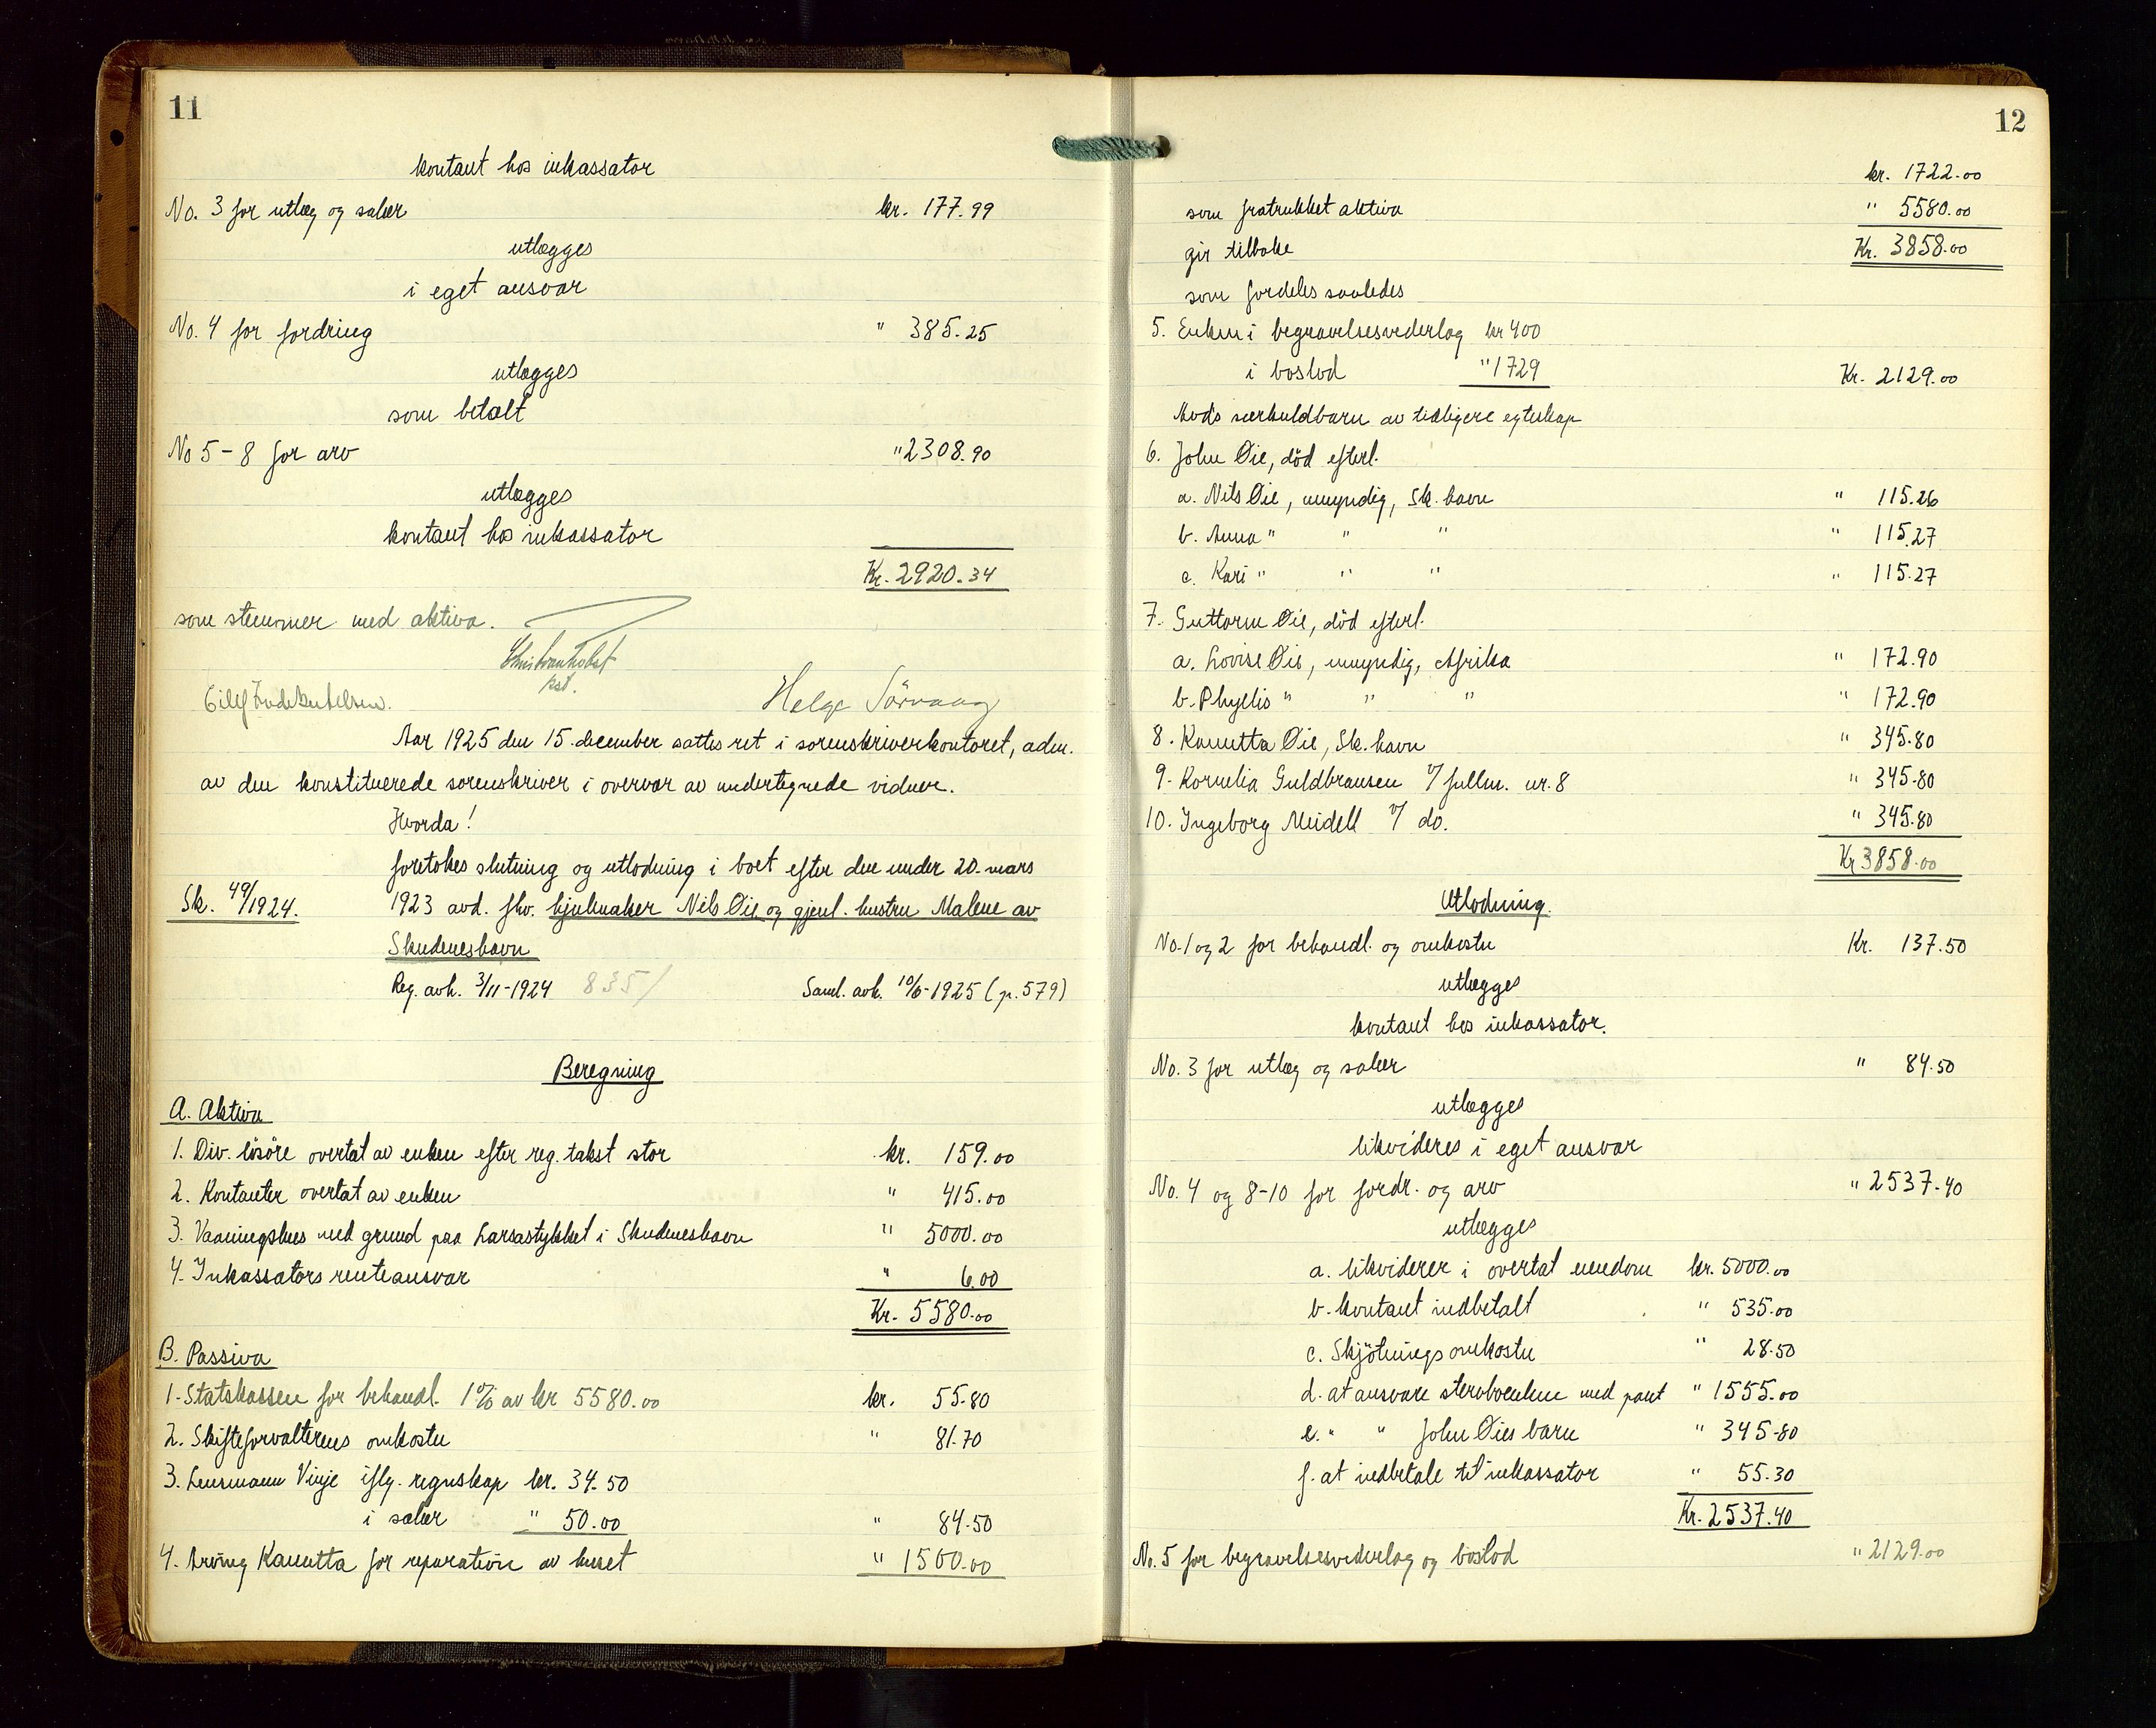 11
kontant hos inkassator
No. 3 for utlæg og salær kr. 177.99
utlægges
i eget ansvar
No. 4 for fordring " 385.25
utlægges
som betalt
No 5-8 for arv " 2308.90
utlægges
kontant hos inkassator
Kr. 2920.34
som stemmer med aktiva.
kst.
Helge Sörvaag
Aar 1925 den 15. december sattes ret i sorenskriverkontoret, adm.
av den konstituerede sorenskriver i overvær av undertegnede vidner.
Hvorda!
foretokes slutning og utlodning i boet efter den under 20. mars
Sk. 49/1924. 1923 avd. fhv. hjulmaker Nils Øie og gjenl. hustru Malene av
Skudeneshavn
Reg. avh. 3/11-1924 835/ Saml. avh. 10/6-1925 (p. 579)
Beregning
A. Aktiva
1. Div. lösöre overtat av enken efter reg. takst stor kr. 159.00
2. Kontanter overtat av enken " 415.00
3. Vaaningshus med grund paa Larsastykket i Skudeneshavn " 5000.00
4. Inkassators renteansvar " 6.00
Kr. 5580.00
B. Passiva
1. Statskassen for behandl. 1% av kr 5580.00 kr. 55.80
2. Skifteforvalterens omkostn " 81.70
3. Lensmann Vinje iflg. regnskap kr. 34.50
i salær " 50.00 " 84.50
4. Arving Kanutta for reparation av huset " 1500.00
12
kr. 1722.00
som fratrukket aktiva " 5580.00
gir tilbake Kr. 3858.00
som fordeles saaledes
5. Enken i begravelsesvederlag kr 400
i boslod " 1729 Kr. 2129.00
Avd's særkuldbarn av tidligere egteskap
6. John Øie, död efterl.
a. Nils Øie, umyndig, Sk.havn " 115.26
b. Anna " " " " 115.27
c. Kari " " " " 115.27
7. Guttorm Øie, död efterl.
a. Lovise Øie, umyndig, Afrika " 172.90
b. Phyllis " " " " 172.90
8. Kanutta Øie, Sk.havn " 345.80
9. Kornelia Guldbransen v/ fullm. nr. 8 " 345.80
10. Ingeborg Meidell v/ do. " 345.80
Kr 3858.00
Utlodning.
No. 1 og 2 for behandl. og omkostn Kr. 137.50
utlægges
kontant hos inkassator.
No. 3 for utlæg og salær " 84.50
utlægges
likvideres i eget ansvar
No. 4 og 8-10 for fordr. og arv " 2537.40
utlægges
a. likviderer i overtat eiendom kr. 5000.00
b. kontant indbetalt " 535.00
c. Skjötningsomkostn " 28.50
d. at ansvare stervboenken med pant " 1555.00
e. " " John Øies barn " 345.80
f. at indbetale til inkassator " 55.30
Kr. 2537.40
No. 5 for begravelsesvederlag og boslod " 2129.00